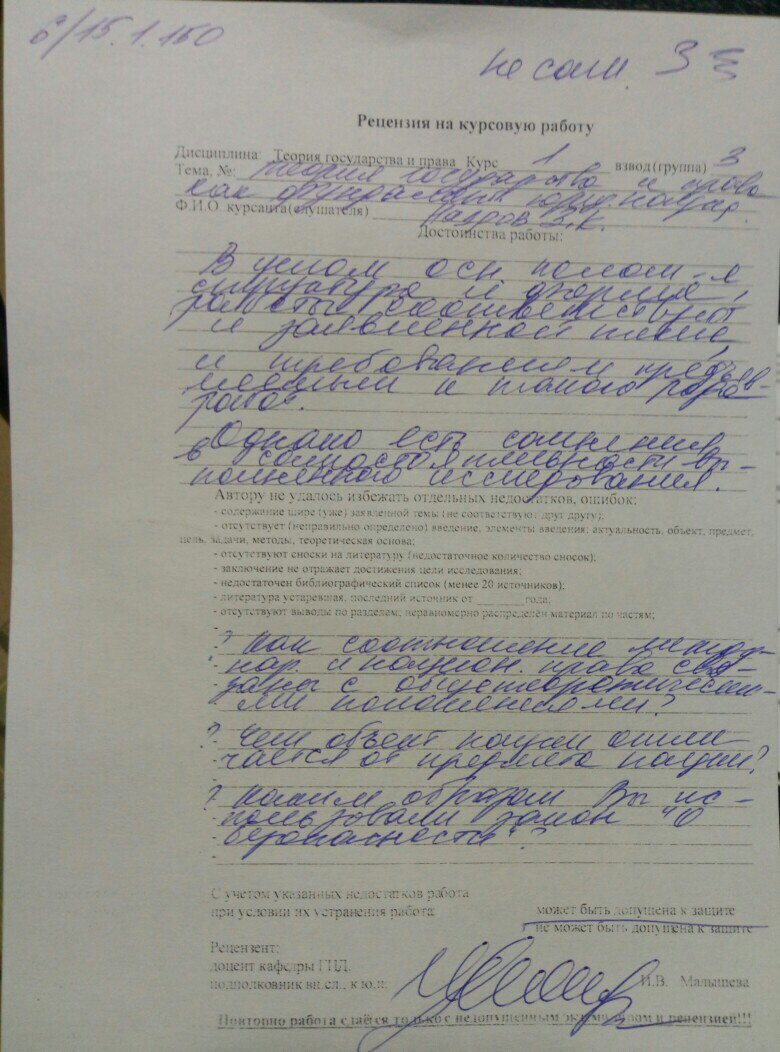 6/15.1.150
не сам. 3
Рецензия на курсовую работу
Дисциплина: Теория государства и права Курс 1 взвод(группа) 3
Тема, №: Теория государства и права
как фундамент. юрид. наука.
Ф.И.О. курсанта(слушателя)
Достоинства работы:
В целом осн. полож-я
структура и оформл.
работы соответствуют
и заявленной теме,
и требованиям предъяв-
ляемым к такого рода
работ.
Однако есть сомнения
в самостоятельности вы-
полненного исследования.
Автору не удалось избежать отдельных недостатков, ошибок:
- содержание шире (уже) заявленной темы (не соответствуют друг другу);
- отсутствует (неправильно определено) введение, элементы введения: актуальность, объект, предмет,
цель, задачи, методы, теоретическая основа;
- отсутствуют сноски на литературу (недостаточное количество сносок);
- заключение не отражает достижения цели исследования;
- недостаточен библиографический список (менее 20 источников);
- литература устаревшая, последний источник от ________ года;
- отсутствуют выводы по разделам; неравномерно распределён материал по частям;
? Как соотношение между-
нар. и национ. права свя-
заны с общетеоретически-
ми положениями?
? Чем объект науки отли
чается от предмета науки?
? Каким образом Вы ис-
пользовали закон "О
безопасности"?
С учетом указанных недостатков работа
при условии их устранения работа
может быть допущена к защите
не может быть допущена к защите
Рецензент:
доцент кафедры ГПД,
подполковник вн.сл., к.ю.н.
И.В. Малышева
Повторно работа сдаётся только с недопущенным экземпляром и рецензией!!!